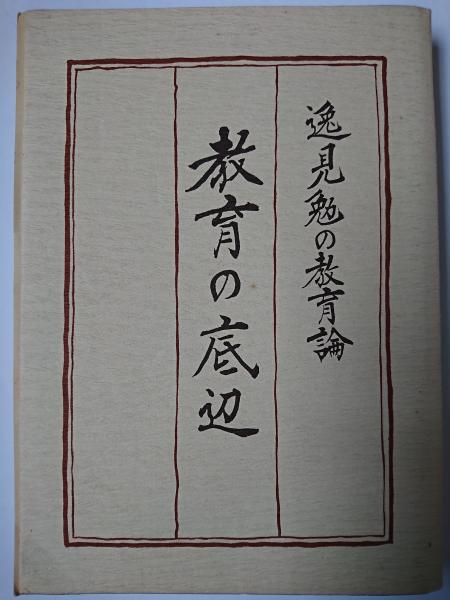 逸見勉の教育論
教育の底辺